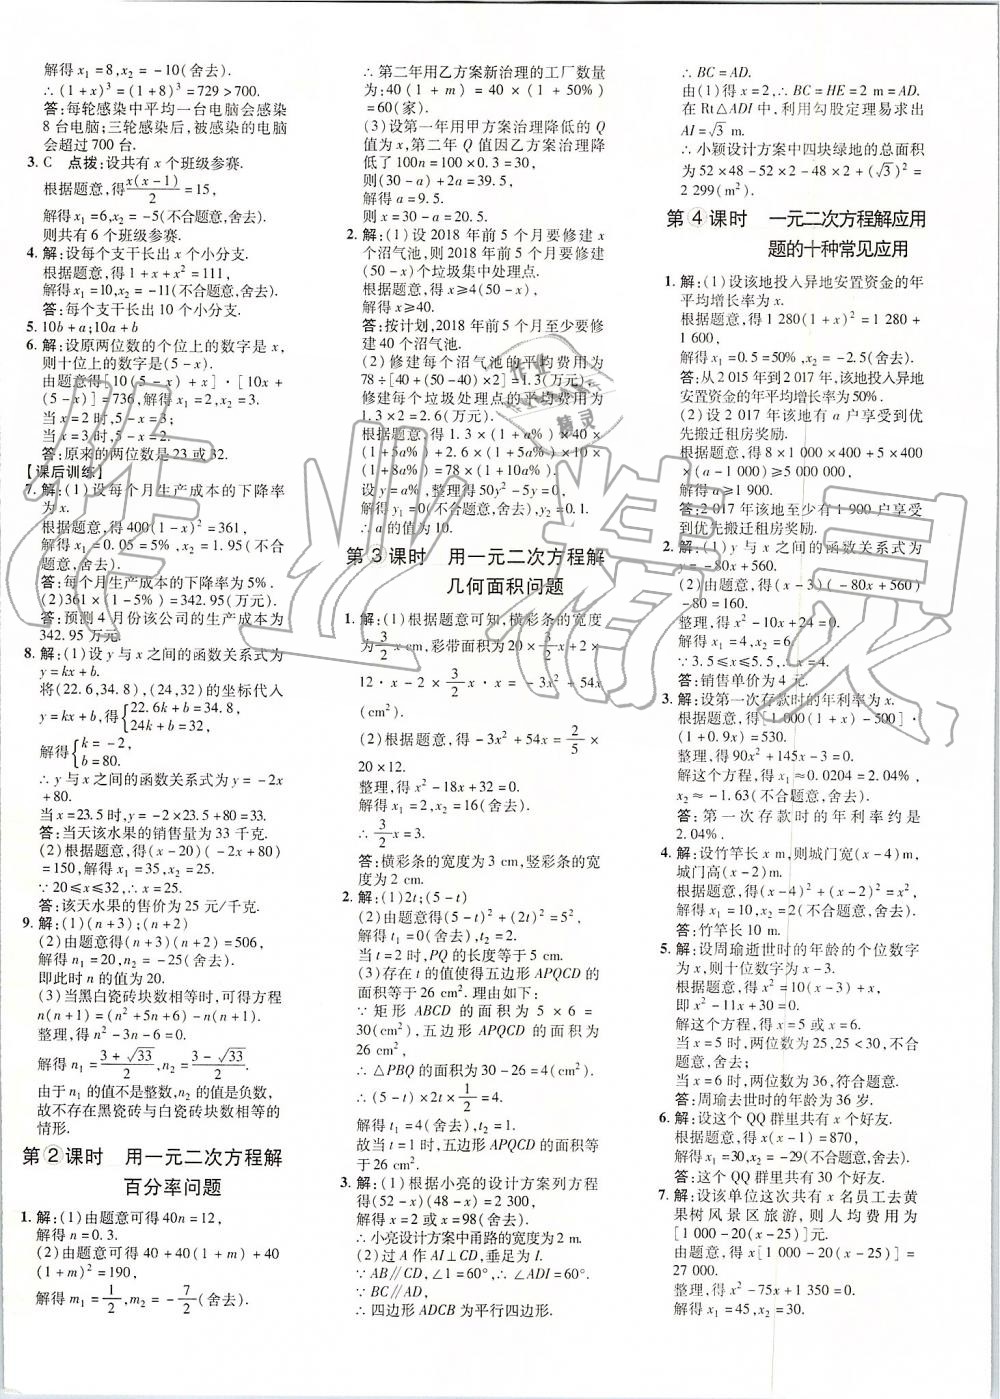 解得 x₁=8,x₂=-10(舍去).
∴(1+x)³=(1+8)³=729>700.
答:每轮感染中平均一台电脑会感染
8 台电脑;三轮感染后,被感染的电脑
会超过 700 台.
3. C 点拨:设共有 x 个班级参赛.
根据题意,得x(x-1)/2=15,
解得 x₁=6,x₂=-5(不合题意,舍去).
则共有 6 个班级参赛.
4. 解:设每个支干长出 x 个小分支.
根据题意,得 1+x+x²=111,
解得 x₁=10,x₂=-11(不合题意,舍去).
答:每个支干长出 10 个小分支.
5. 10b+a;10a+b
6. 解:设原两位数的个位上的数字是 x,
则十位上的数字是(5-x).
由题意得[10(5-x)+x]·[10x+
(5-x)]=736,解得 x₁=2,x₂=3.
当 x=2 时,5-x=3;
当 x=3 时,5-x=2.
答:原来的两位数是 23 或 32.
【课后训练】
7. 解:(1)设每个月生产成本的下降率
为 x.
根据题意,得 400(1-x)²=361,
解得 x₁=0.05=5%,x₂=1.95(不合
题意,舍去).
答:每个月生产成本的下降率为 5%.
(2)361×(1-5%)=342.95(万元).
答:预测 4 月份该公司的生产成本为
342.95 万元.
8. 解:(1)设 y 与 x 之间的函数关系式为
y=kx+b.
将(22.6,34.8),(24,32)的坐标代入
y=kx+b,得{22.6k+b=34.8,
24k+b=32,
解得{k=-2,
b=80.
∴y 与 x 之间的函数关系式为 y=-2x
+80.
当 x=23.5 时,y=-2×23.5+80=33.
答:当天该水果的销售量为 33 千克.
(2)根据题意得(x-20)(-2x+80)
=150,解得 x₁=35,x₂=25.
∵20≤x≤32,∴x=25.
答:该天水果的售价为 25 元/千克.
9. 解:(1)(n+3);(n+2)
(2)由题意得(n+3)(n+2)=506,
解得 n₁=20,n₂=-25(舍去).
即此时 n 的值为 20.
(3)当黑白瓷砖块数相等时,可得方程
n(n+1)=(n²+5n+6)-n(n+1).
整理,得 n²-3n-6=0.
解得 n₁=(3+√33)/2,n₂=(3-√33)/2.
由于 n₁ 的值不是整数,n₂的值是负数,
故不存在黑瓷砖与白瓷砖块数相等的
情形.
第②课时 用一元二次方程解
百分率问题
1. 解:(1)由题意可得40n=12,
解得 n=0.3.
(2)由题意可得 40+40(1+m)+40
(1+m)²=190,
解得 m₁=1/2,m₂=-7/2(舍去).
∴第二年用乙方案新治理的工厂数量
为:40(1+m)=40×(1+50%)
=60(家).
(3)设第一年用甲方案治理降低的 Q
值为 x,第二年 Q 值因乙方案治理降
低了 100n=100×0.3=30,
则(30-a)+2a=39.5,
解得 a=9.5.
则 x=30-a=20.5.
2. 解:(1)设 2018 年前 5 个月要修建 x
个沼气池,则 2018 年前 5 个月要修建
(50-x)个垃圾集中处理点.
根据题意,得 x≥4(50-x),
解得 x≥40.
答:按计划,2018 年前 5 个月至少要修
建 40 个沼气池.
(2)修建每个沼气池的平均费用为
78÷[40+(50-40)×2]=1.3(万元),
修建每个垃圾处理点的平均费用为
1.3×2=2.6(万元).
根据题意,得 1.3×(1+a%)×40×
(1+5a%)+2.6×(1+5a%)×10×
(1+8a%)=78×(1+10a%).
设 y=a%,整理得50y²-5y=0.
解得 y₁=0(不合题意,舍去),y₂=0.1.
∴a 的值为 10.
第③课时 用一元二次方程解
几何面积问题
1. 解:(1)根据题意可知,横彩条的宽度
为3/2 x cm,彩带面积为20×3/2 x+2×
12·x-2×3/2 x·x=-3x²+54x
(cm²).
(2)根据题意,得-3x²+54x=2/5×
20×12.
整理,得 x²-18x+32=0.
解得 x₁=2,x₂=16(舍去).
∴3/2 x=3.
答:横彩条的宽度为 3 cm,竖彩条的宽
度为 2 cm.
2. 解:(1)2t;(5-t)
(2)由题意得(5-t)²+(2t)²=5²,
解得 t₁=0(舍去),t₂=2.
当 t=2 时,PQ 的长度等于 5 cm.
(3)存在 t 的值使得五边形 APQCD 的
面积等于 26 cm².理由如下:
∵矩形 ABCD 的面积为 5×6=
30(cm²),五边形 APQCD 的面积为
26 cm²,
∴△PBQ 的面积为 30-26=4(cm²).
∴(5-t)×2t×1/2=4,
解得 t₁=4(舍去),t₂=1.
故当 t=1 时,五边形 APQCD 的面积
等于 26 cm².
3. 解:(1)根据小亮的设计方案列方程
得(52-x)(48-x)=2 300,
解得 x=2 或 x=98(舍去).
∴小亮设计方案中甬路的宽度为 2 m.
(2)过 A 作 AI⊥CD,垂足为 I.
∵AB∥CD,∠1=60°,∴∠ADI=60°.
∵BC∥AD,
∴四边形 ADCB 为平行四边形.
∴BC=AD.
由(1)得 x=2,∴BC=HE=2 m=AD.
在 Rt△ADI 中,利用勾股定理易求出
AI=√3 m.
∴小颖设计方案中四块绿地的总面积
为 52×48-52×2-48×2+(√3)²=
2 299(m²).
第④课时 一元二次方程解应用
题的十种常见应用
1. 解:(1)设该地投入异地安置资金的年
平均增长率为 x.
根据题意,得 1 280(1+x)²=1 280+
1 600,
解得 x₁=0.5=50%,x₂=-2.5(舍去).
答:从2 015年到2 017年,该地投入异地
安置资金的年平均增长率为 50%.
(2)设 2 017 年该地有 a 户享受到优
先搬迁租房奖励.
根据题意,得 8×1 000×400+5×400
×(a-1 000)≥5 000 000,
解得 a≥1 900.
答:2 017 年该地至少有 1 900 户享受
到优先搬迁租房奖励.
2. 解:(1)y 与 x 之间的函数关系式为 y
=-80x+560.
(2)由题意,得(x-3)(-80x+560)
-80=160.
整理,得 x²-10x+24=0.
解得 x₁=4,x₂=6.
∵3.5≤x≤5.5,∴x=4.
答:销售单价为 4 元.
3. 解:设第一次存款时的年利率为 x.
根据题意,得[1 000(1+x)-500]·
(1+0.9x)=530.
整理,得 90x²+145x-3=0.
解这个方程,得 x₁≈0.0204=2.04%,
x₂≈-1.63(不合题意,舍去).
答:第一次存款时的年利率约是
2.04%.
4. 解:设竹竿长 x m,则城门宽(x-4)m,
城门高(x-2)m.
根据题意,得(x-4)²+(x-2)²=x²,
解得 x₁=10,x₂=2(不合题意,舍去).
答:竹竿长 10 m.
5. 解:设周瑜逝世时的年龄的个位数字
为 x,则十位数字为 x-3.
根据题意,得 x²=10(x-3)+x,
即 x²-11x+30=0.
解这个方程,得 x=5 或 x=6.
当 x=5 时,两位数为 25,25<30,不合
题意,舍去;
当 x=6 时,两位数为 36,符合题意.
答:周瑜去世时的年龄为 36 岁.
6. 解:设这个 QQ 群里共有 x 个好友.
根据题意,得 x(x-1)=870,
解得 x₁=30,x₂=-29(不合题意,舍去).
答:这个 QQ 群里共有 30 个好友.
7. 解:设该单位这次共有 x 名员工去黄
果树风景区旅游,则人均费用为
[1 000-20(x-25)]元.
由题意,得 x[1 000-20(x-25)]=
27 000.
整理,得 x²-75x+1 350=0.
解得 x₁=45,x₂=30.
作业精灵
作业
精灵